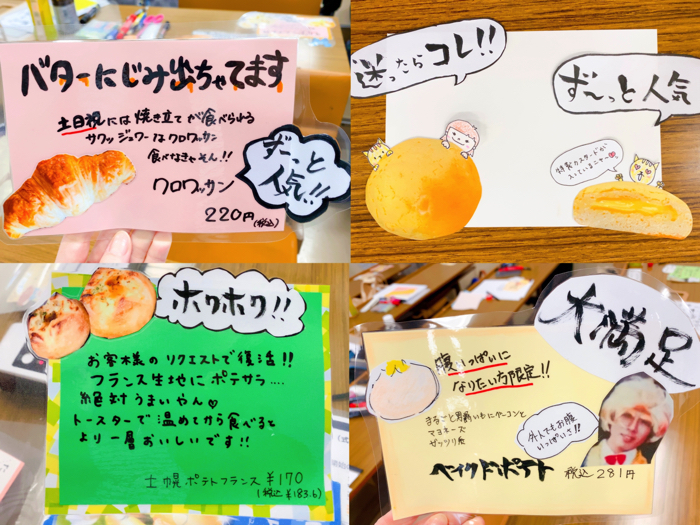 バターにじみ出ちゃてます
土日祝には焼き立てが食べられる
サクッジュワーなクロワッサン
食べなきゃそん!!
クロワッサン
220円
(税込)
ずーっと
人気!!
迷ったら
コレ!!
ずーっと人気
特製カスタードが
入っているニャー♥
ホクホク!!
お客様のリクエストで復活!!
フランス生地にポテサラ....
絶対うまいやん♡
トースターで温めてから食べると
より一層おいしいです!!
士幌ポテトフランス ¥170
(税込¥183.6)
大満足
腹いっぱいに
なりたい方限定!!
まるごと男爵いもにベーコンと
マヨネーズ
ガッツリ系
外人でもお腹
いっぱいさ!!
ベイクドポテト 税込281円